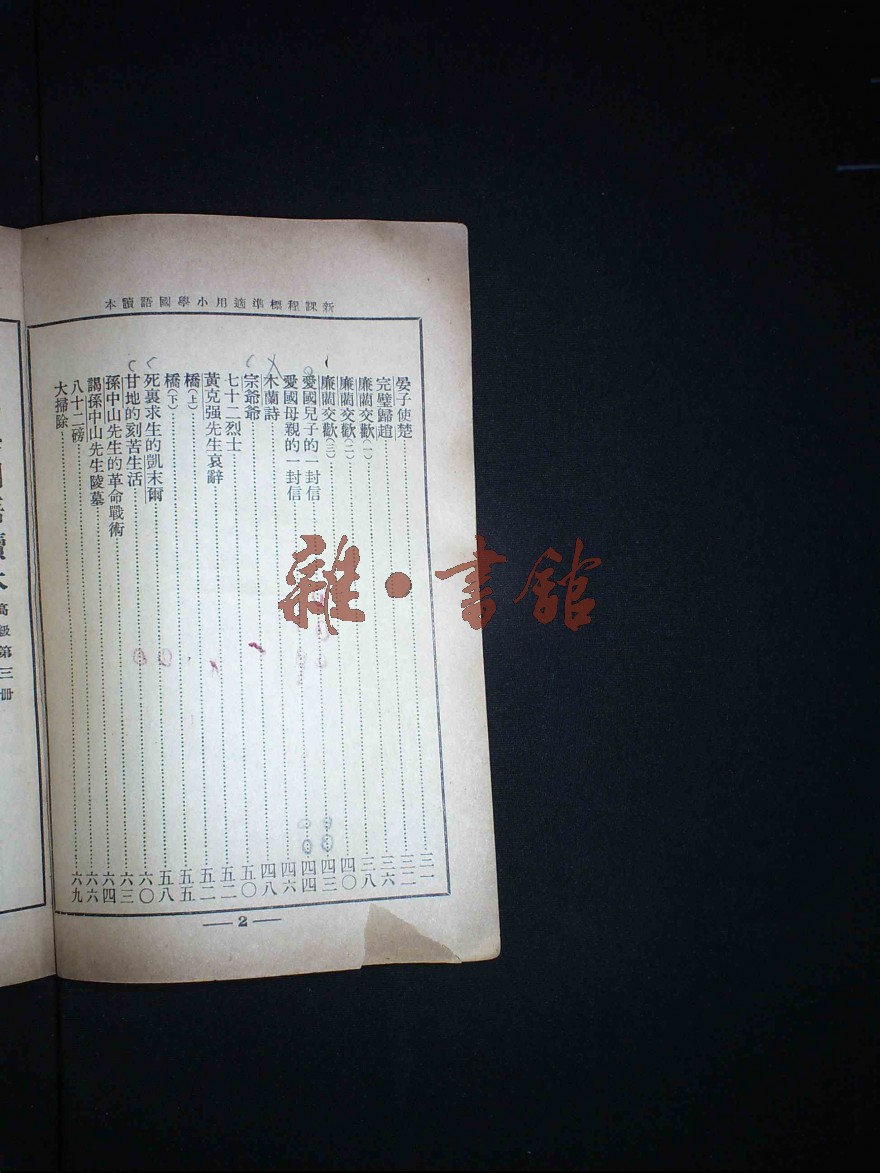 新課程標準適用小學國語讀本
晏子使楚……三一
完璧歸趙……三二
廉藺交歡(一)……三六
廉藺交歡(二)……三八
廉藺交歡(三)……四〇
愛國兒子的一封信……四三
愛國母親的一封信……四四
木蘭詩……四六
宗爺爺……四八
七十二烈士……五〇
黃克强先生哀辭……五二
橋(上)……五二
橋(下)……五五
死裏求生的凱末爾……五八
甘地的刻苦生活……六〇
孫中山先生的革命戰術……六三
謁孫中山先生陵墓……六四
八十二磅……六六
大掃除……六九
— 2 —
高級第三册
雜·書館